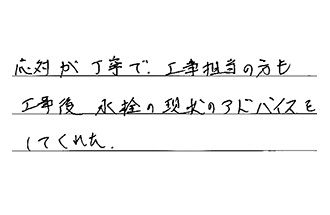 応対が丁寧で、工事担当の方も
工事後 水栓の現状のアドバイスを
してくれた。